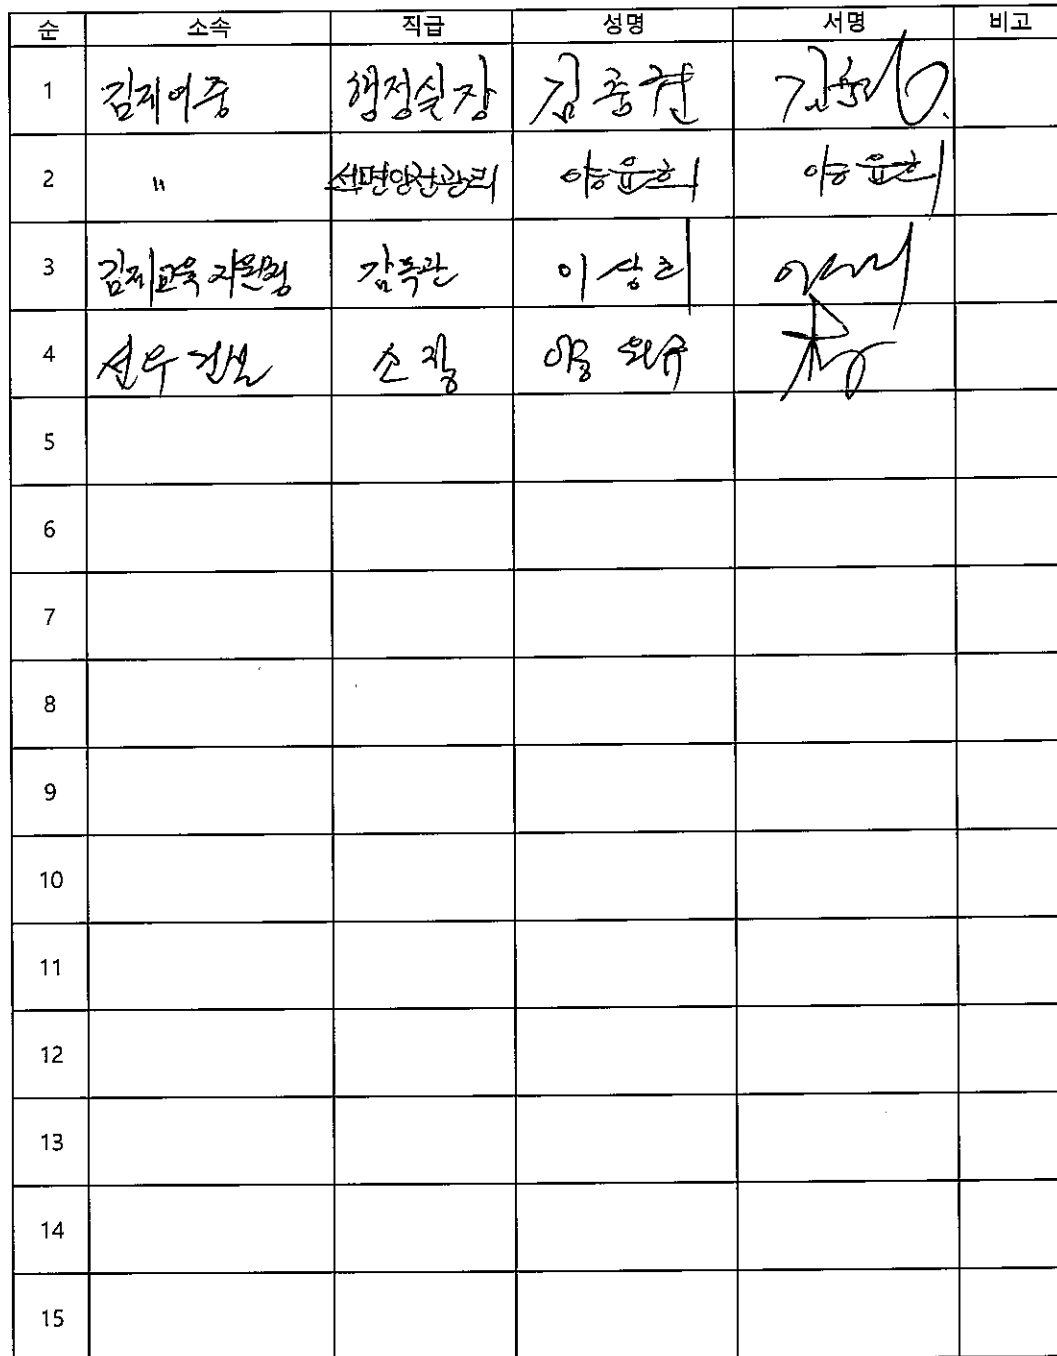 순 소속 직급 성명 서명 비고
1 김제여중 행정실장 김종현
2 "
3 김제교육지원청 감독관 이상희
4 선우건설 소장
5
6
7
8
9
10
11
12
13
14
15